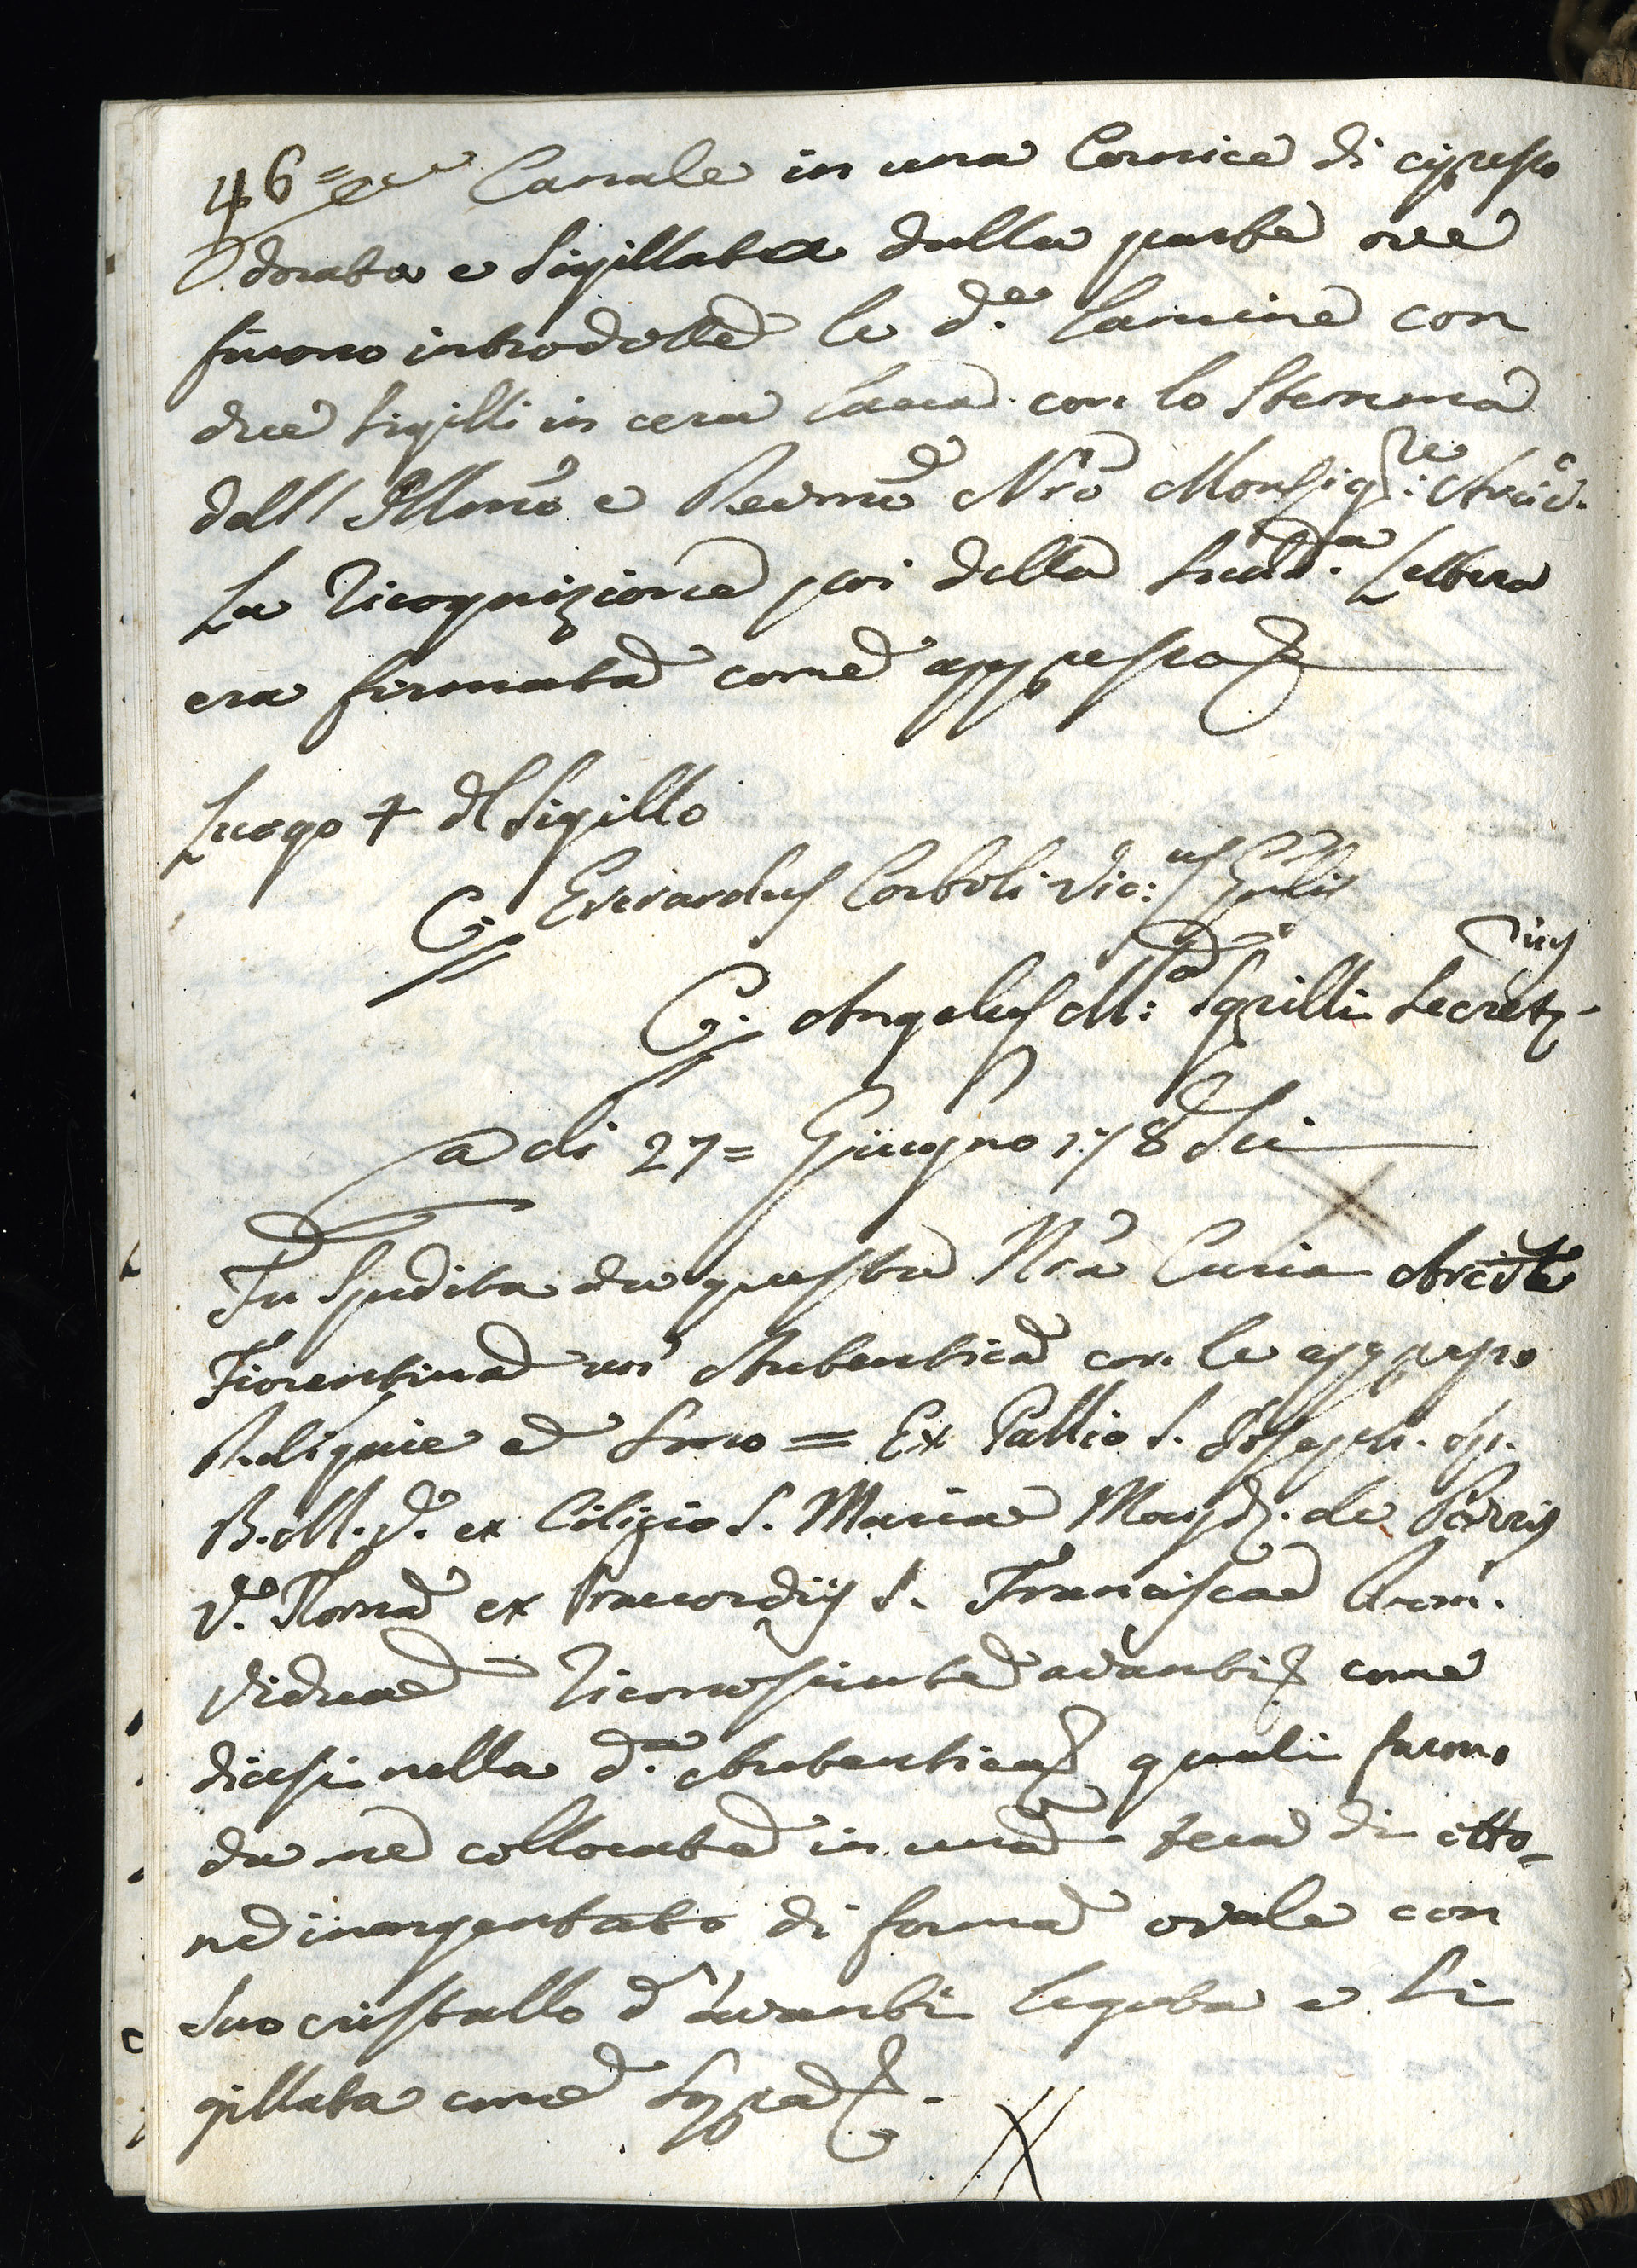 46= Canale in una Cornice di cipresso
dorata e Sigillata dalla parte ove
furono introdotte le d.e Lamine con
due Sigilli in cera lacca con lo Stemma
dell' Illmo e Revmo Nro Monsig.re Arciv.
La Ricognizione poi della Sud.a Lettera
era firmata come appresso
Luogo + del Sigillo
C. Everardus Corboli Vic.us Gnlis
C. Angelus M.a Sgrilli Secret.ius
a di 27= Giugno 178
Fu Spedita da questa Nra Curia Arcivle
Fiorentina un' Autentica con le appresso
Reliquie e Sono = Ex Pallio S. Joseph. sp.
B. M. V. ex Cilizio S. Mariae Magd. de Pazzis
V. Flornae ex Praecordijs S. Franciscae Rom.
Viduae Riconosciute avanti come
dicesi nella d.a Autentica quali furono
da me collocate in una teca di otto-
ne inargentato di forma ovale con
Suo cristallo d'avanti legata e Si
gillata come Sopra.